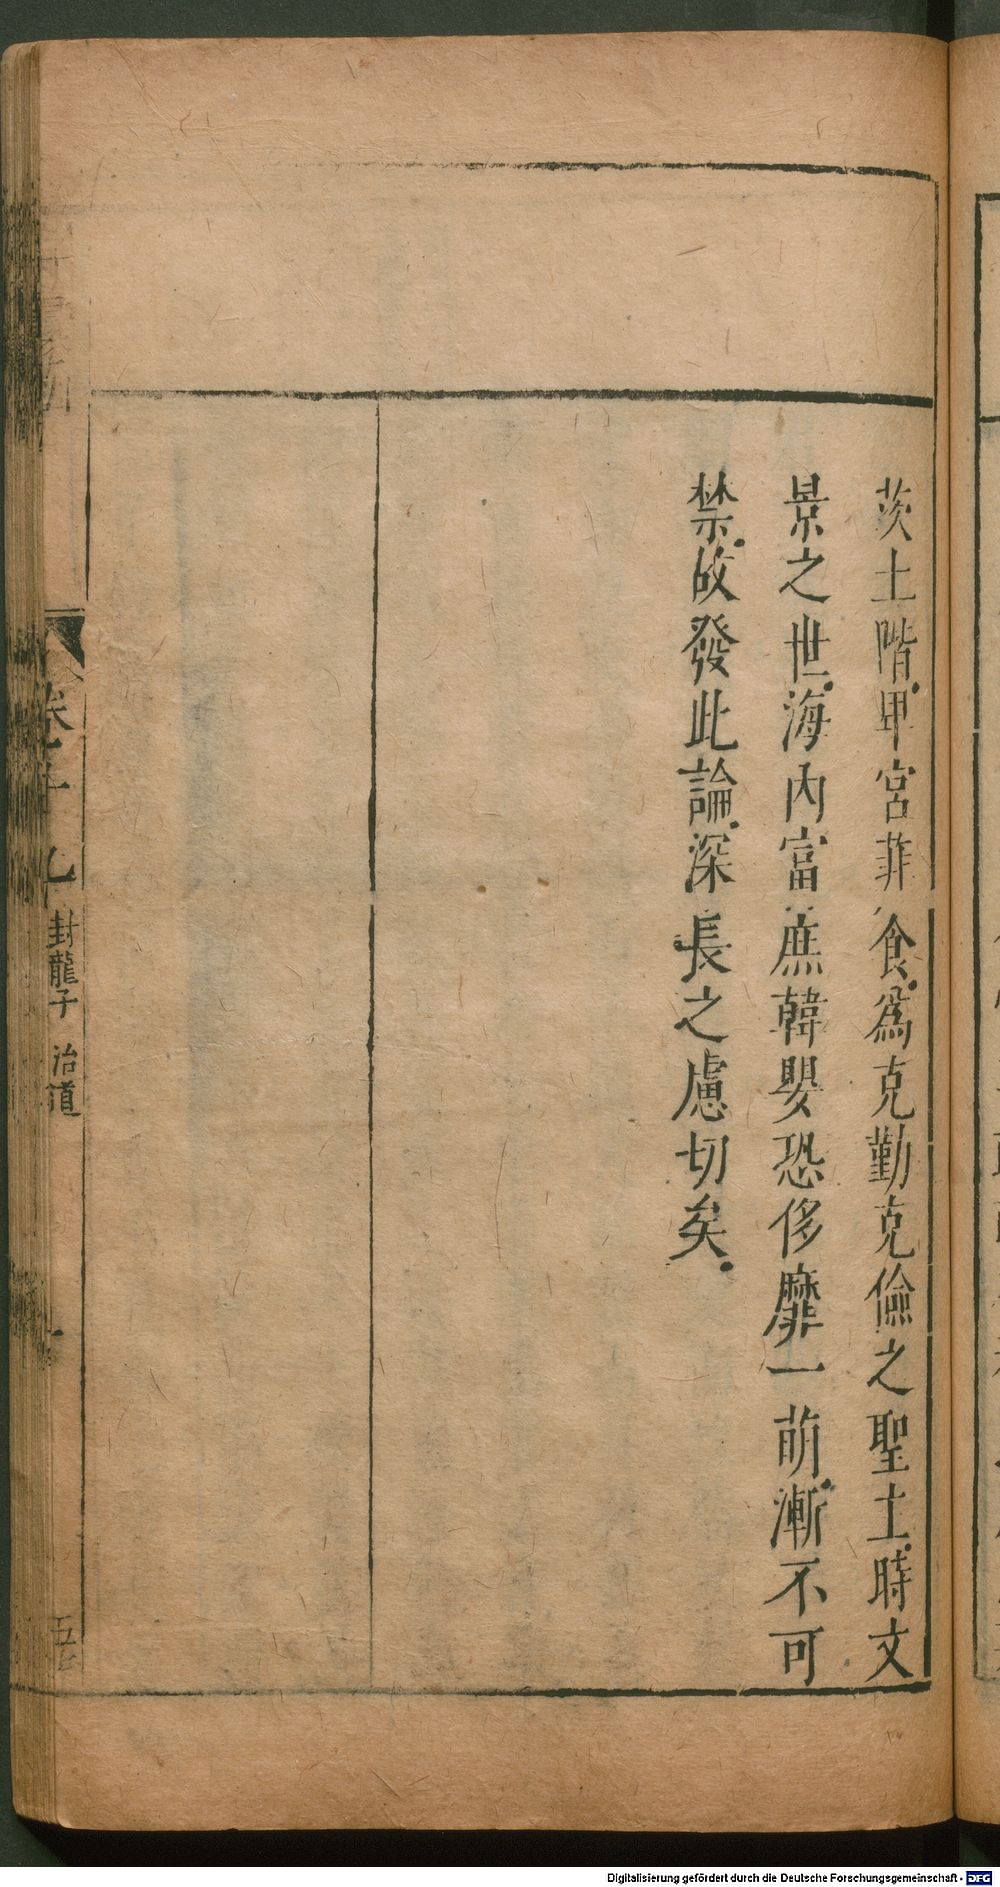 茨土階甲宮菲食爲克勤克儉之聖土時文
景之世海內富庶韓嬰恐侈靡一萌漸不可
禁故發此論深長之慮切矣
卷十九 封龍子 治道
Digitalisierung gefördert durch die Deutsche Forschungsgemeinschaft - DFG